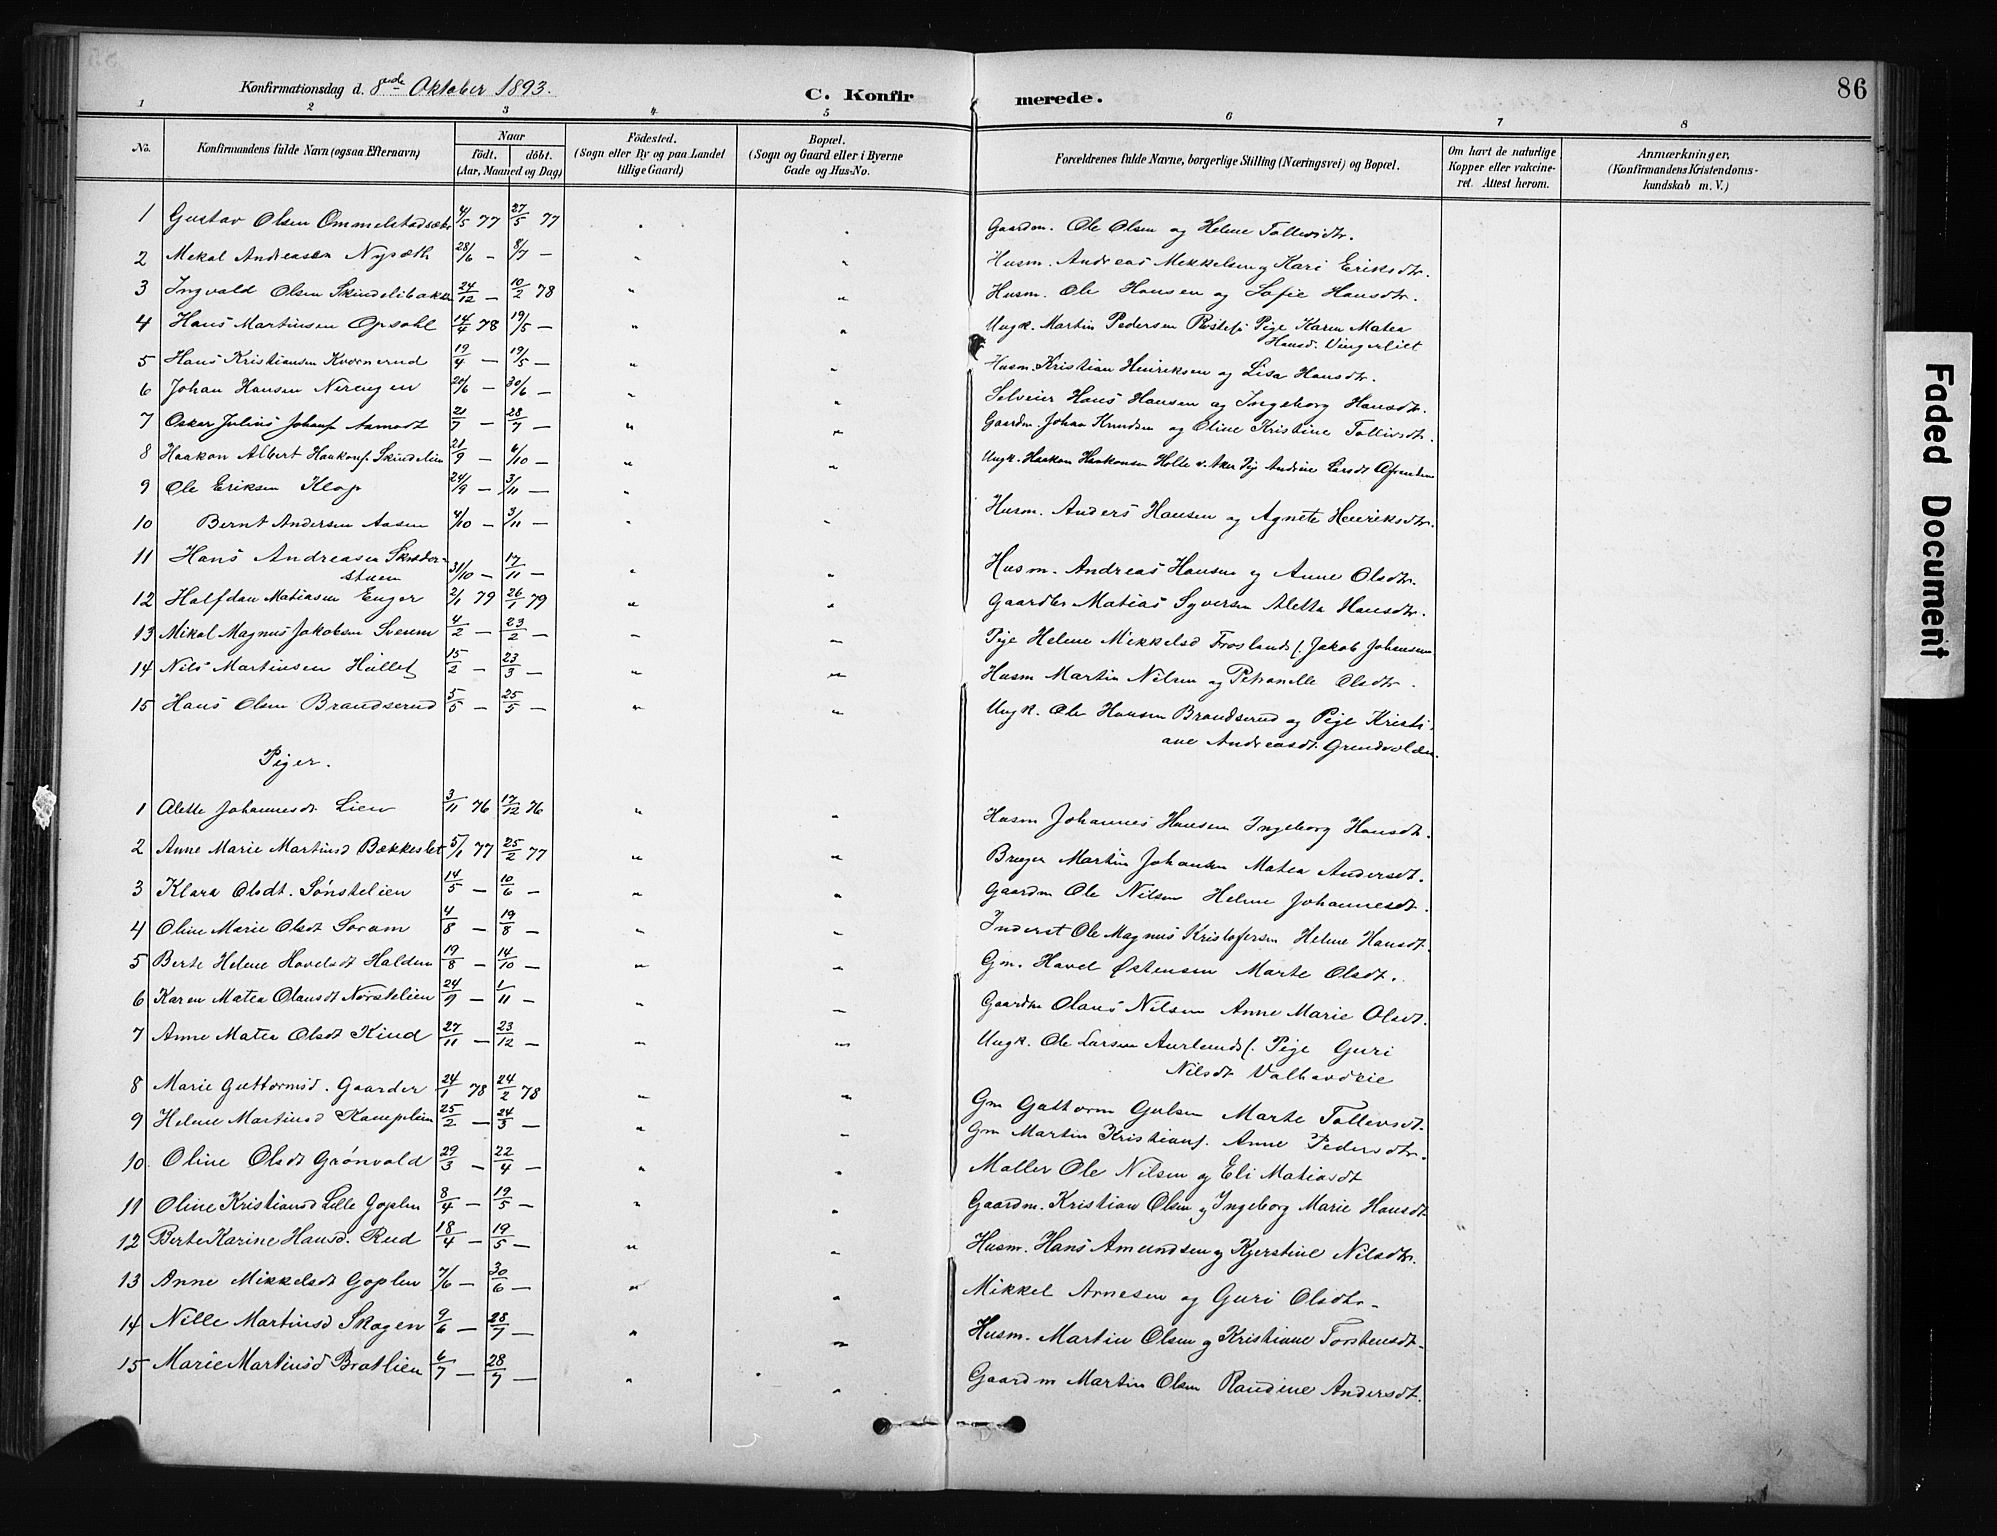 Konfirmationsdag d. 8nde Oktober 1893.
C. Konfirmerede.
86
1 2 3 4 5 6 7 8
No.
Konfirmandens fulde Navn (ogsaa Efternavn)
Naar
födt. döbt.
(Aar, Maaned og Dag)
Födested.
(Sogn eller By og paa Landet
tillige Gaard)
Bopæl.
(Sogn og Gaard eller i Byerne
Gade og Hus-No.
Forældrenes fulde Navne, borgerlige Stilling (Næringsvei) og Bopæl.
Om havt de naturlige
Kopper eller vakcine-
ret. Attest herom.
Anmærkninger,
(Konfirmandens Kristendoms-
kundskab m. V.)
1 Gustav Olsen Ommelstadsæter 4/5 77 27/5 77 " " Gaardm. Ole Olsen og Helene Tollevsdtr.
2 Mekal Andreasen Nysæth 28/6 — 8/7 — " " Husm. Andreas Mekkelsen og Kari Eriksdtr.
3 Ingvald Olsen Skindelibakken 24/12 — 10/2 78 " " Husm. Ole Hansen og Sofie Hansdtr.
4 Hans Martinsen Opsahl 14/4 78 19/5 — " " Ungk. Martin Pedersen Pige Karen Matea
Hansd. Vingerliet
5 Hans Kristiansen Kvernerud 19/4 — 19/5 — " " Husm. Kristian Henriksen og Lisa Hansdtr.
6 Johan Hansen Nerengen 20/6 — 30/6 — " " Selveier Hans Hansen og Ingeborg Hansdtr.
7 Oskar Julius Johans. Aamodt 21/7 — 28/7 — " " Gaardm. Johan Knudsen og Oline Kristine Tollevsdtr.
8 Haakon Albert Haakons. Skindelien 21/9 — 6/10 — " " Ungk. Haakon Haakonsen Holte v. Aker Pige Andrine Larsdt
9 Ole Eriksen Klop 24/9 — 3/11 — "
10 Bernt Andersen Aasen 4/10 — 3/11 — " " Husm. Anders Hansen og Agnete Henriksdtr.
11 Hans Andreasen Skredder-
stuen 31/10 — 17/11 — " " Husm. Andreas Hansen og Anne Olsdtr.
12 Halfdan Matiasen Enger 2/1 79 26/1 79 " " Gaardbr Matias Syversen Aletta Hansdtr.
13 Mikal Magnus Jakobsen Sveum 4/2 — 23/2 — " " Pige Helene Mikkelsd Froslands. Jakob Johansen
14 Nils Martinsen Hullet 15/2 — 23/3 — " " Husm Martin Nilsen og Petronelle Olsdtr.
15 Hans Olsen Brandserud 5/5 — 25/5 — " " Ungk. Ole Hansen Brandserud og Pige Kristi-
ane Andreasdt. Grendvolden.
Piger.
1 Alette Johannesdt Lien 3/11 76 17/12 76 " " Husm Johannes Hansen Ingeborg Hansdt.
2 Anne Marie Martinsd Bækkeslet 5/1 77 25/2 77 " " Bruger Martin Johansen Matea Andersdt.
3 Klara Olsdt. Sönstelien 14/5 — 10/6 — " " Gaardm Ole Nilsen Helene Johannesdt.
4 Oline Marie Olsdt Soram 4/8 — 19/8 — " " Inderst Ole Magnus Kristofersen Helene Hansdt.
5 Berte Helene Hovelsdt Halden 19/8 — 14/10 — " " Gm. Havel Østensen Marte Olsdt.
6 Karen Matea Olausdt Nörstelien 24/9 — 1/11 — " " Gaardm Olaus Nilsen Anne Marie Olsdt.
7 Anne Matea Olsdt Kind 27/11 — 23/12 — " " Ungk. Ole Larsen Aurlands. Pige Guri
Nilsdt
8 Marie Guttormsd. Gaarder 24/1 78 24/2 78 " " Gm Guttorm Gulsen Marte Tollevsdt.
9 Helene Martinsd Kamplien 25/2 — 24/3 — " " Gm Martin Kristians. Anne Pedersdtr.
10 Oline Olsdt Grönvold 29/3 — 22/4 — " " Møller Ole Nilsen og Eli Matiasdt
11 Oline Kristiansd Lille Goplen 8/4 — 19/5 — " " Gaardm. Kristian Olsen og Ingeborg Marie Hansdt
12 Berte Karine Hansd. Rud 18/4 — 19/5 — " " Husm. Hans Amundsen og Kjerstine Nilsdtr.
13 Anne Mikkelsdt Goplen 7/6 — 30/6 — " " Mikkel Arnesen og Guri Olsdtr.
14 Nille Martinsd Skogen 9/6 — 28/7 — " " Husm. Martin Olsen og Kristiane Torstensdt.
15 Marie Martinsd Bratlien 6/7 — 28/7 — " " Gaardm Martin Olsen Randine Andersdt.
Faded Document